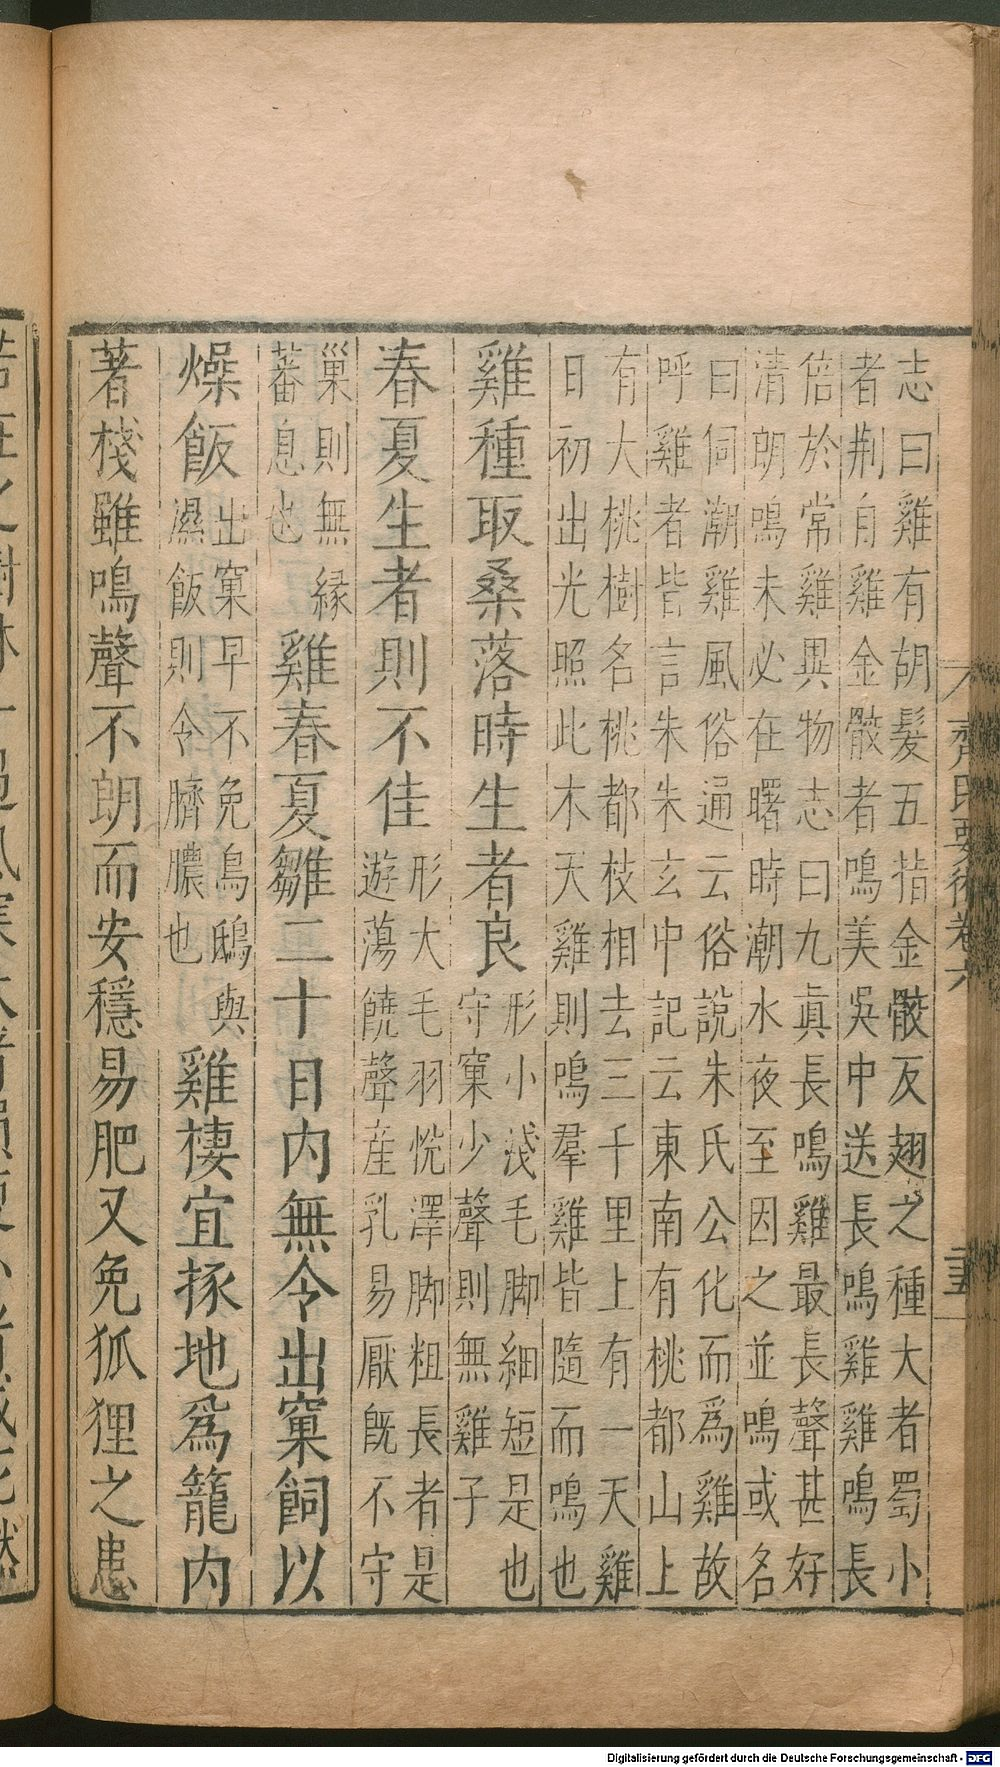 志曰雞有胡髮五指金骹反翅之種大者蜀小
者荆自雞金骹者鳴美吳中送長鳴雞雞鳴長
倍於常雞異物志曰九眞長鳴雞最長聲甚好
清朗鳴未必在曙時潮水夜至因之並鳴或名
曰伺潮雞風俗通云俗說朱氏公化而爲雞故
呼雞者皆言朱朱玄中記云東南有桃都山上
有大桃樹名桃都枝相去三千里上有一天雞
日初出光照此木天雞則鳴羣雞皆隨而鳴也
雞種取桑落時生者良
形小淺毛脚細短是也
守窠少聲則無雞子
春夏生者則不佳
形大毛羽恱澤脚粗長者是
遊蕩饒聲産乳易厭旣不守
巢則無縁
蕃息也
雞春夏雛二十日内無令出窠飼以
燥飯
出窠早不免烏鴟與
濕飯則令臍膿也
雞棲宜㧻地爲籠内
著棧雖鳴聲不朗而安穩易肥又免狐狸之患
齊民要術卷六
Digitalisierung gefördert durch die Deutsche Forschungsgemeinschaft - DFG